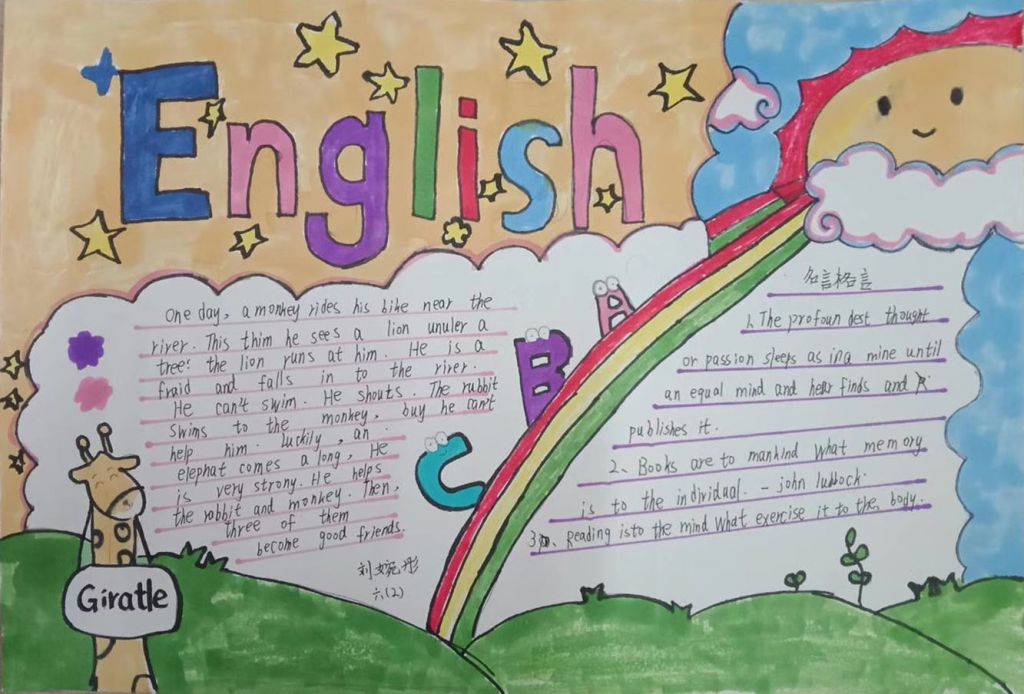 English
One day, a monkey rides his bike near the
river. This thim he sees a lion unuler a
tree: the lion runs at him. He is a
fraid and falls in to the river.
He can't swim. He shouts. The rubbit
swims to the monkey, buy he can't
help him. luckily, an.
elephat comes a long, He
is very strong. He helps
the robbit and monkey. Then,
three of them
become good friends.
六(2)
Giratle
A
B
C
名言格言
1、The profoun dest thought
or passion sleeps as in a mine until
an equal mind and hear finds and
publishes it.
2、Books are to mankind what memory
is to the individual. - john lubbock.
3、Reading isto the mind what exercise it to the body.